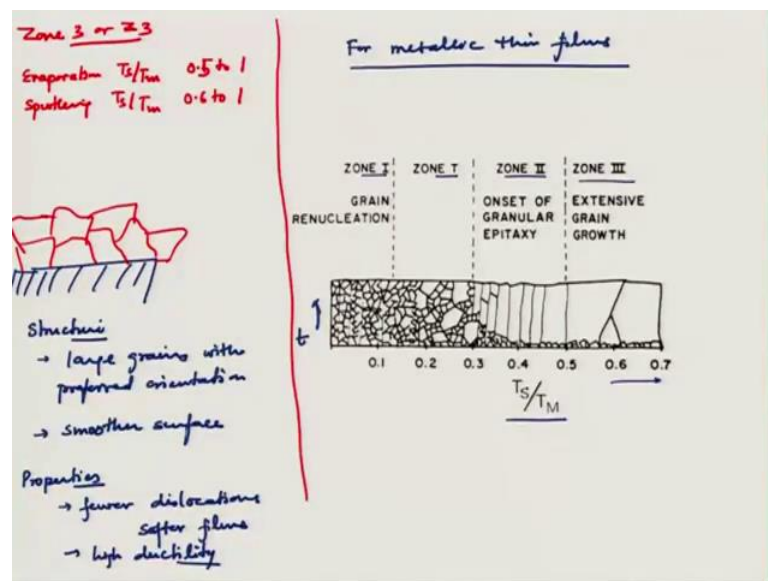 Zone 3 or Z3
Evaporation Ts/Tm 0.5 to 1
Sputtering Ts/Tm 0.6 to 1
Structure
→ large grains with
preferred orientation
→ smoother surface
Properties
→ fewer dislocations
softer films
→ high ductility
For metallic thin films
ZONE I
ZONE T
ZONE II
ZONE III
GRAIN
RENUCLEATION
ONSET OF
GRANULAR
EPITAXY
EXTENSIVE
GRAIN
GROWTH
t
0.1 0.2 0.3 0.4 0.5 0.6 0.7
TS/TM